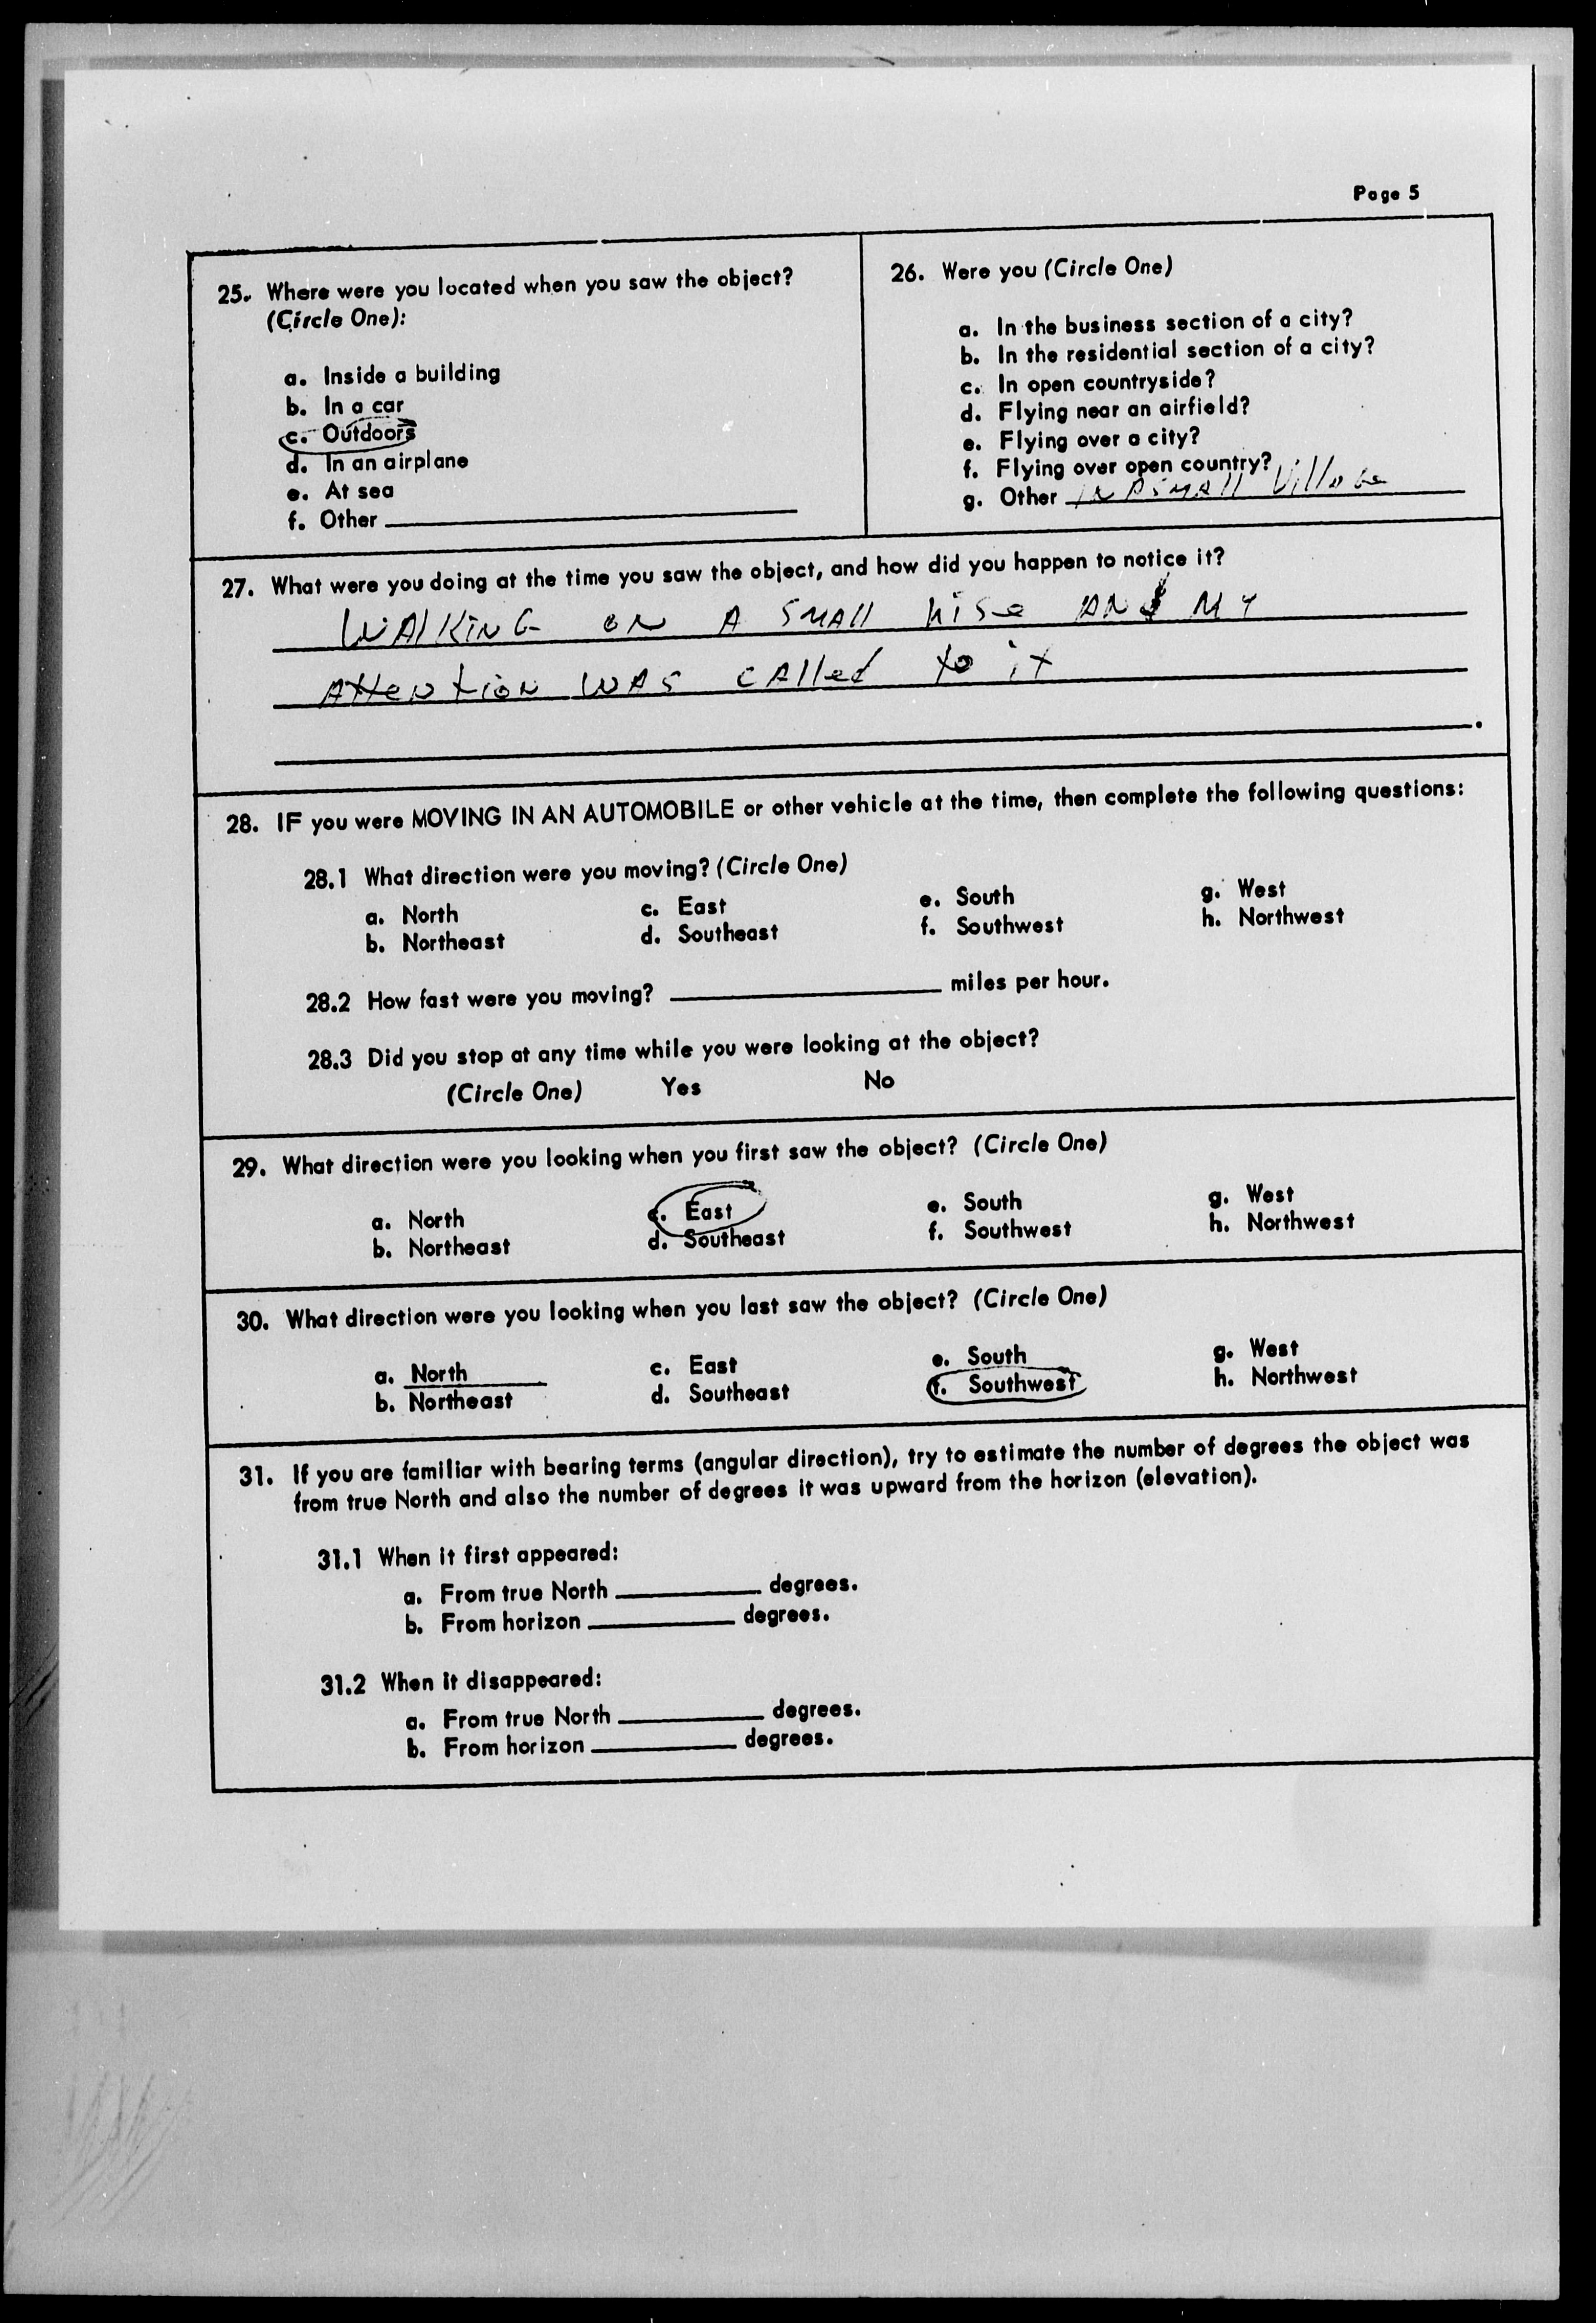 Page 5
25. Where were you located when you saw the object?
(Circle One):
a. Inside a building
b. In a car
c. Outdoors
d. In an airplane
e. At sea
f. Other
26. Were you (Circle One)
a. In the business section of a city?
b. In the residential section of a city?
c. In open countryside?
d. Flying near an airfield?
e. Flying over a city?
f. Flying over open country?
g. Other IN A SMAll VillaGe
27. What were you doing at the time you saw the object, and how did you happen to notice it?
WAlKiNG ON A SMAll RiSe AND MY
AttentioN WAS CAlled to it
28. IF you were MOVING IN AN AUTOMOBILE or other vehicle at the time, then complete the following questions:
28.1 What direction were you moving? (Circle One)
a. North c. East e. South g. West
b. Northeast d. Southeast f. Southwest h. Northwest
28.2 How fast were you moving? miles per hour.
28.3 Did you stop at any time while you were looking at the object?
(Circle One) Yes No
29. What direction were you looking when you first saw the object? (Circle One)
a. North c. East e. South g. West
b. Northeast d. Southeast f. Southwest h. Northwest
30. What direction were you looking when you last saw the object? (Circle One)
a. North c. East e. South g. West
b. Northeast d. Southeast f. Southwest h. Northwest
31. If you are familiar with bearing terms (angular direction), try to estimate the number of degrees the object was
from true North and also the number of degrees it was upward from the horizon (elevation).
31.1 When it first appeared:
a. From true North degrees.
b. From horizon degrees.
31.2 When it disappeared:
a. From true North degrees.
b. From horizon degrees.